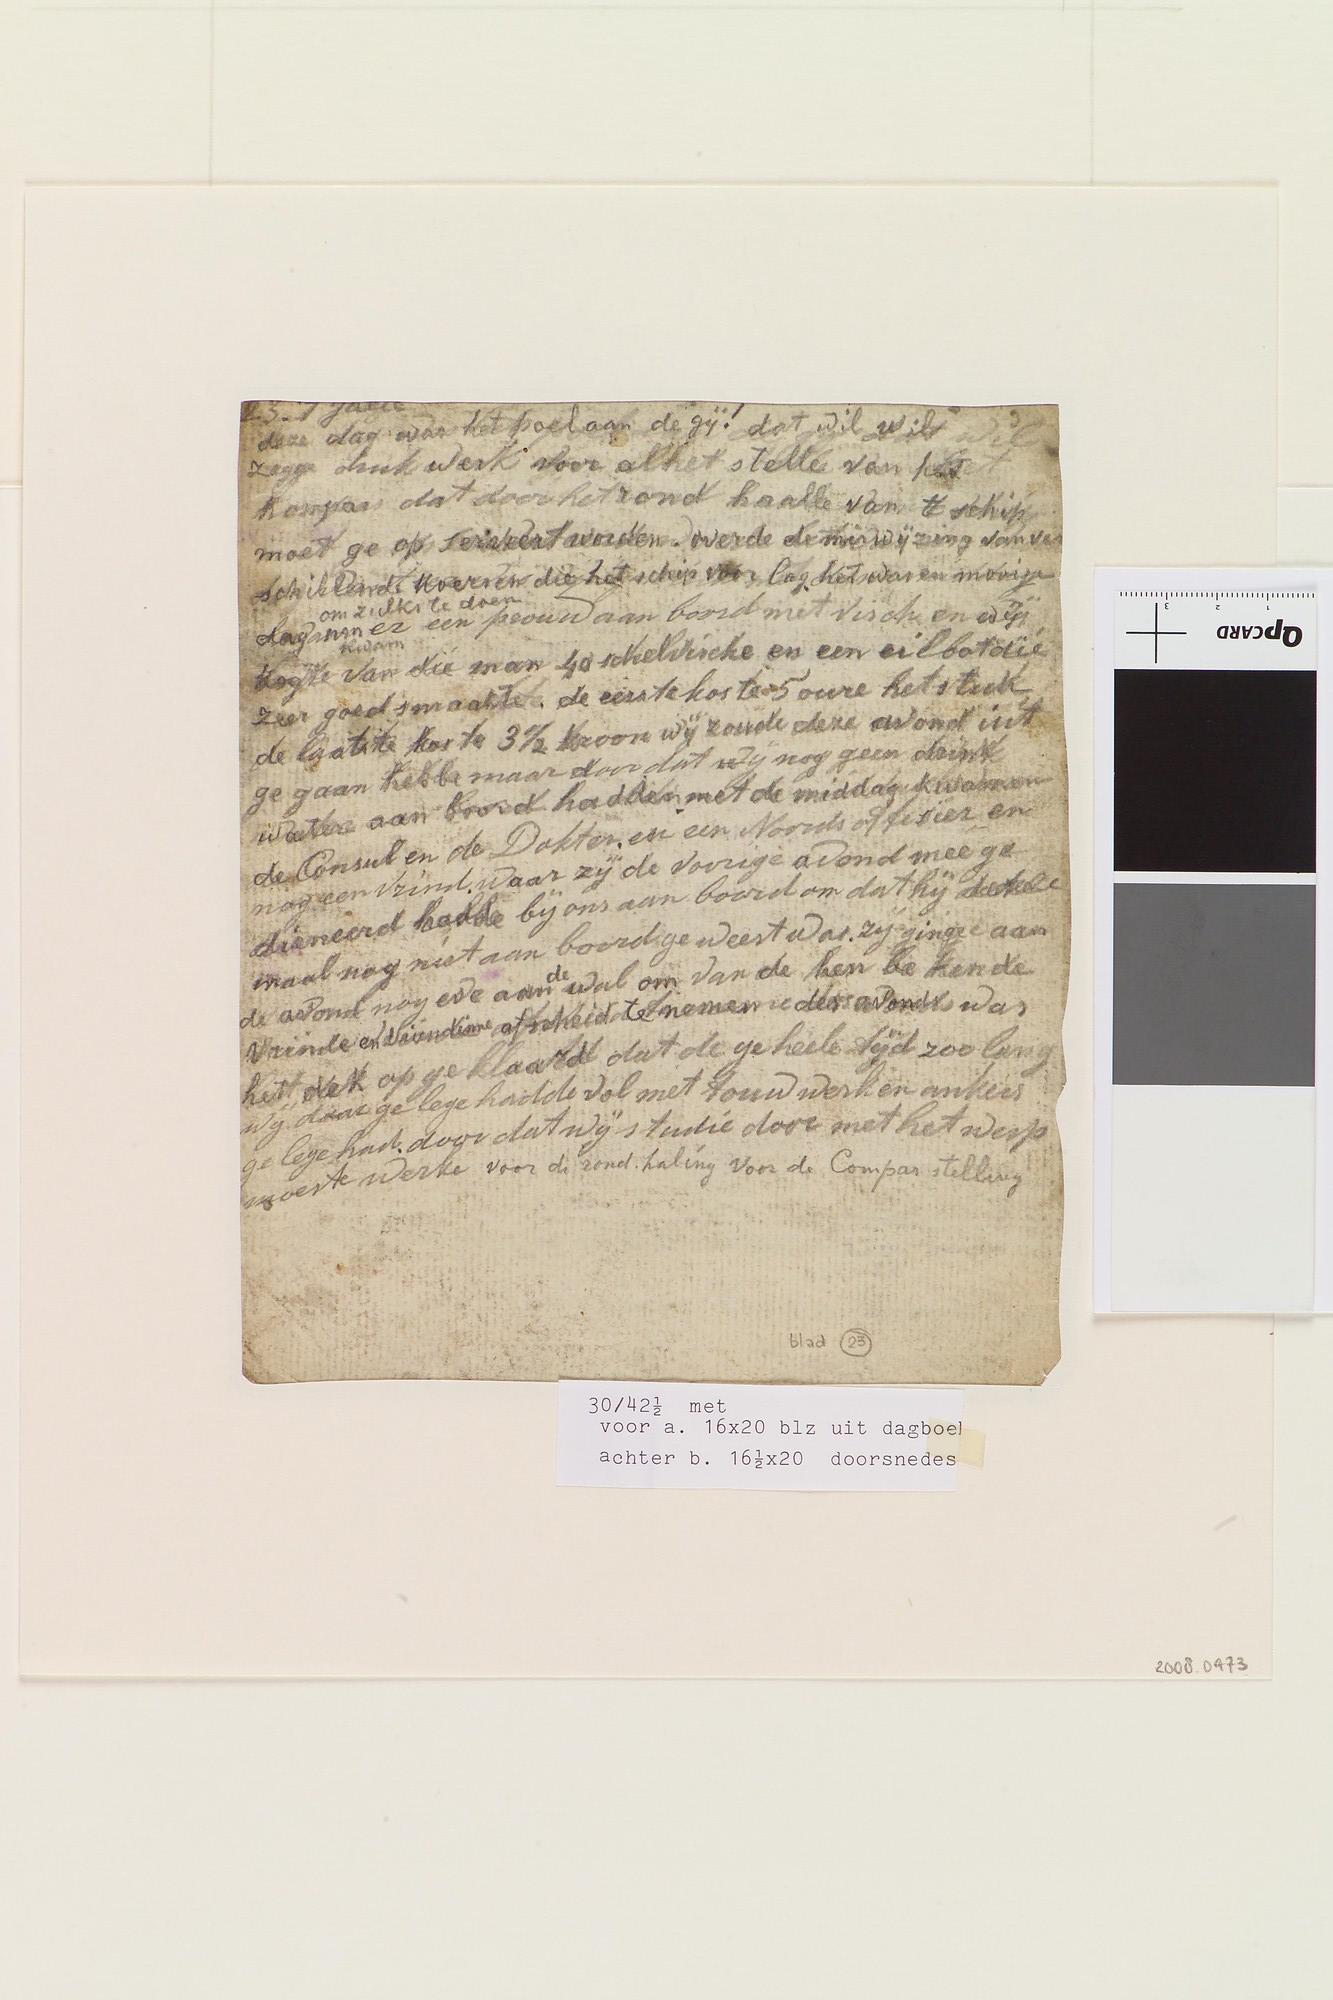 deze dag was het poel aan de gij! dat wil wil
zegge druk werk voor al het stelle van het
kompas dat door het rond haalle van t schip
moet ge op serveert worden. overde de miswijzing van ver
schillende koersen die het schip voor lag. het was en movige
om zulks te doen
dag er een prouw aan boord met visch en wij
kwam
kogte van die man 40 schelvische en een eilbot die
zeer goed smaakte. de eerste koste 5 oure het stuk
de laatste koste 3½ kroon wij zoude deze avond uit
ge gaan hebbe maar door dat wij nog geen drink
watere aan boord hadden met de middag kwamen
de Consul en de Dokter. en een Noords offisier en
nog een vrind. waar zij de vorige avond mee ge
dieneerd hadde bij ons aan boord om dat hij
maal nog niet aan boord ge weest was. zij gingee aan
de avond nog eve aan de wal om van de hen be kende
vrinde en vriendinne afscheid te nemen des avonds was
het dek op ge klaard dat de geheele tijd zoo lang
wij daar ge lege hadde vol met touw werk en ankers
ge lege had. door dat wij studie door met het werp
moeste werke voor de rond haling voor de Compas stelling
blad 23
30/42½ met
voor a. 16x20 blz uit dagboek
achter b. 16½x20 doorsnedes
2008.0473
QPCARD
1 2 3